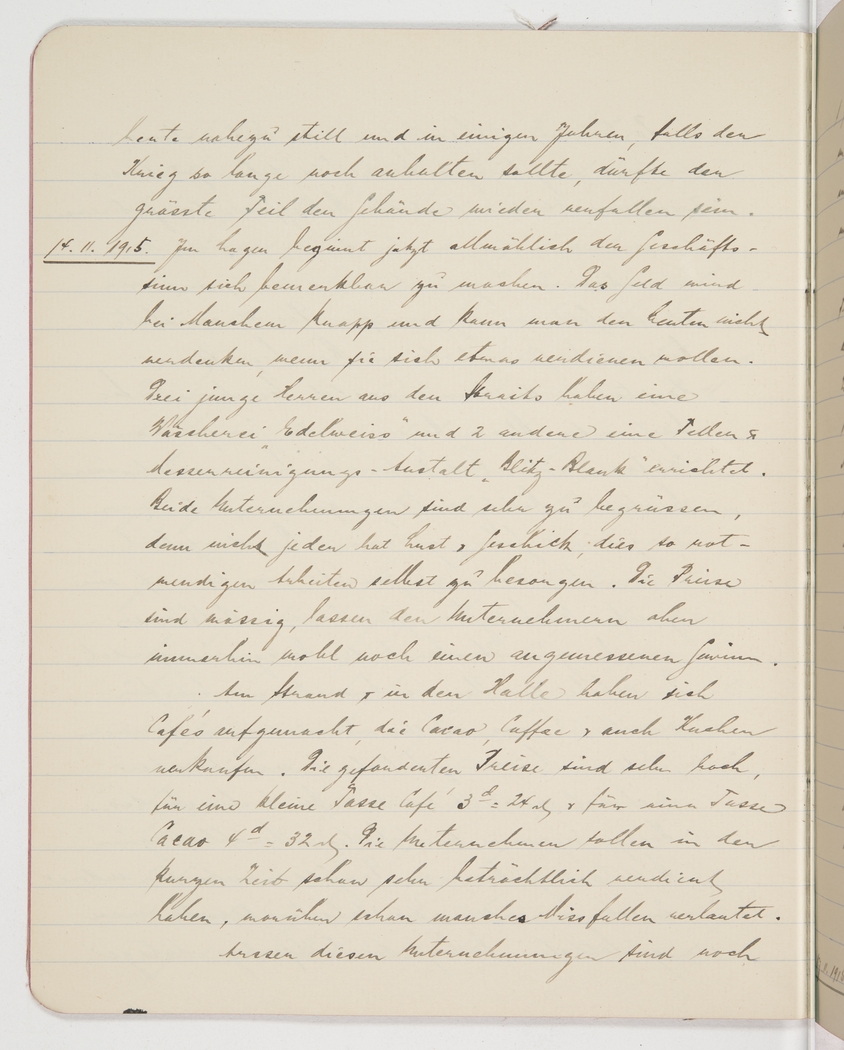 heute nahezu still und in einigen Jahren, falls der
Krieg so lange noch anhalten sollte, dürfte der
grösste Teil der Gebäude wieder verfallen sein.
14. 11. 1915. Im Lager beginnt jetzt allmählich der Geschäfts-
sinn sich bemerkbar zu machen. Das Geld wird
bei Manchem knapp und kann man den Leuten nicht
verdenken, wenn sie sich etwas verdienen wollen.
Drei junge Herren aus den Straits haben eine
Wäscherei "Edelweiss" und 2 andere eine Teller &
Messerreinigungs-Anstalt "Blitz-Blank" errichtet.
Beide Unternehmungen sind sehr zu begrüssen,
denn nicht jeder hat Lust & Geschick, dies so not-
wendigen Arbeiten selbst zu besorgen. Die Preise
sind mässig, lassen den Unternehmern aber
immerhin wohl noch einen angemessenen Gewinn.
Am Strand & in der Halle haben sich
Cafés aufgemacht, die Cacao, Caffee & auch Kuchen
verkaufen. Die geforderten Preise sind sehr hoch,
für eine kleine Tasse Café 3d = 24 & für eine Tasse
Cacao 4d = 32. Die Unternehmer sollen in der
kurzen Zeit schon sehr beträchtlich verdient
haben, worüber schon manches Missfallen verlautet.
Ausser diesen Unternehmungen sind noch